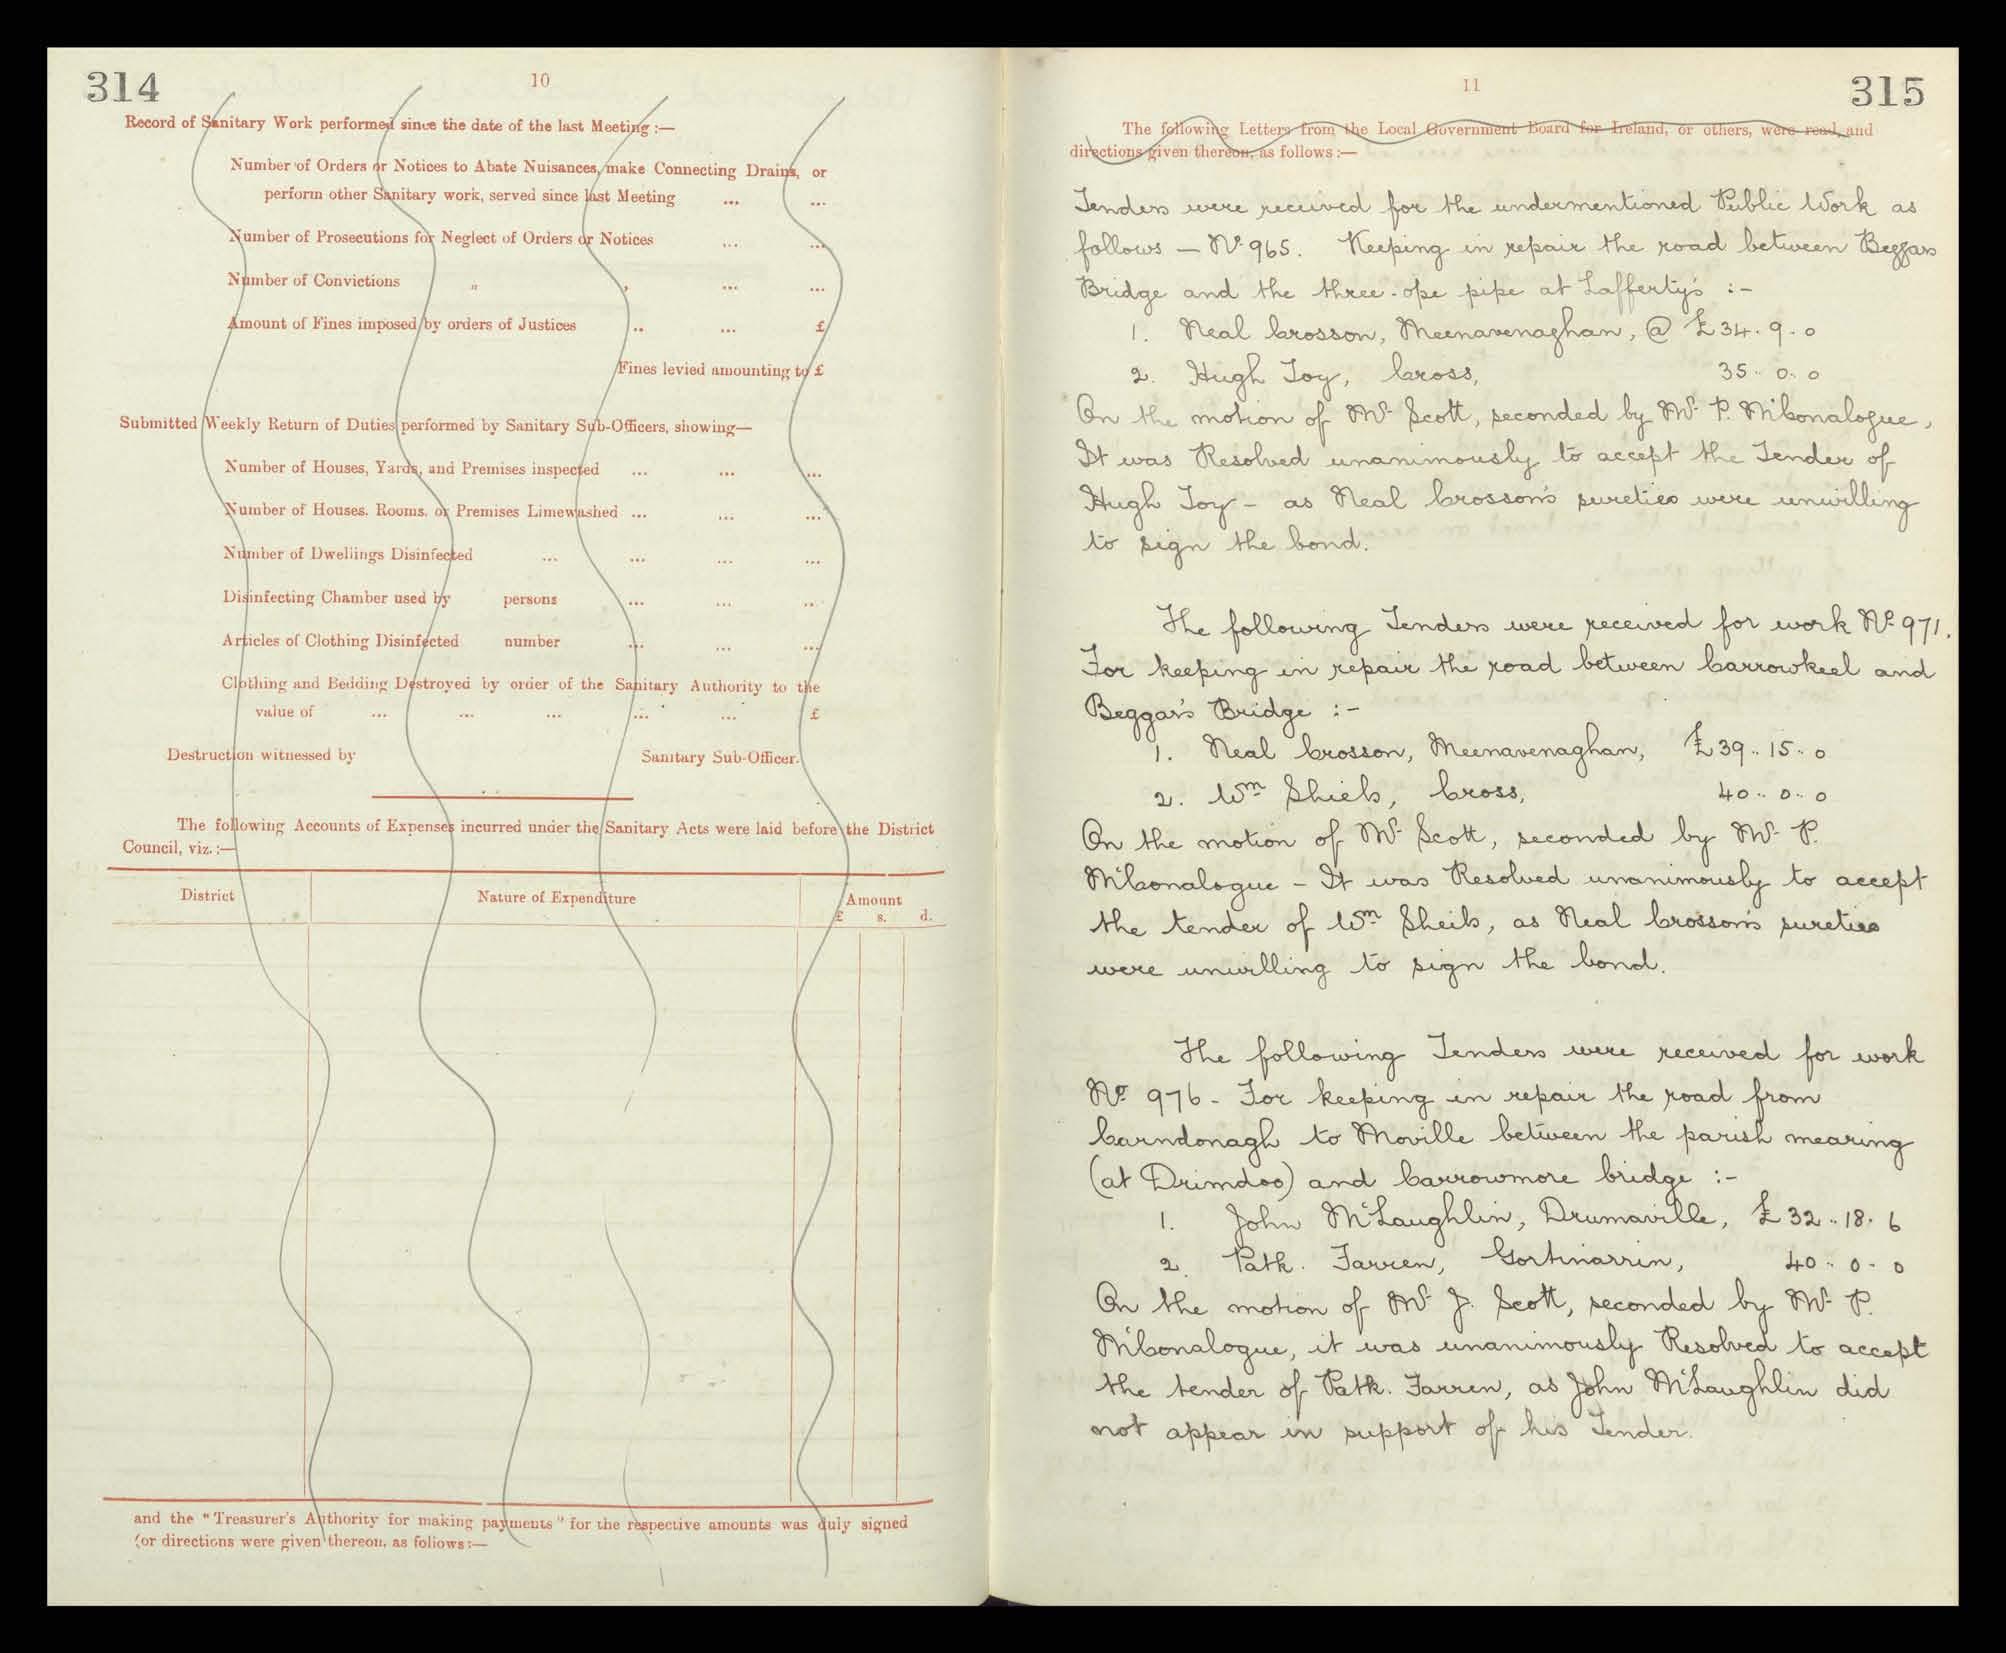 314
10
Record of Sanitary Work performed since the date of the last Meeting :—
Number of Orders or Notices to Abate Nuisances, make Connecting Drains, or
perform other Sanitary work, served since last Meeting ... ...
Number of Prosecutions for Neglect of Orders or Notices ... ...
Number of Convictions „ , ... ...
Amount of Fines imposed by orders of Justices .. ... £
Fines levied amounting to £
Submitted Weekly Return of Duties performed by Sanitary Sub-Officers, showing—
Number of Houses, Yards, and Premises inspected ... ... ...
Number of Houses. Rooms. or Premises Limewashed ... ... ...
Number of Dwellings Disinfected ... ... ... ...
Disinfecting Chamber used by persons ... ... ..
Articles of Clothing Disinfected number ... ... ...
Clothing and Bedding Destroyed by order of the Sanitary Authority to the
value of ... ... ... ... ... £
Destruction witnessed by Sanitary Sub-Officer.
The following Accounts of Expenses incurred under the Sanitary Acts were laid before the District
Council, viz. :—
District Nature of Expenditure Amount
£ s. d.
and the "Treasurer's Authority for making payments" for the respective amounts was duly signed
(or directions were given thereon, as follows :—
11
315
The following Letters from the Local Government Board for Ireland, or others, were read, and
directions given thereon, as follows :—
Tenders were received for the undermentioned Public Work as
follows — No. 965. Keeping in repair the road between Beggars
Bridge and the three-ope pipe at Lafferty's :-
1. Neal Crosson, Meenavenaghan, @ £34..9..0
2. Hugh Toy, Cross, 35..0..0
On the motion of Mr. Scott, seconded by Mr. P. McConalogue,
It was Resolved unanimously to accept the Tender of
Hugh Toy - as Neal Crosson's sureties were unwilling
to sign the bond.
The following Tenders were received for work No. 971.
For keeping in repair the road between Carrowkeel and
Beggar's Bridge :-
1. Neal Crosson, Meenavenaghan, £39..15..0
2. Wm. Shiels, Cross, 40..0..0
On the motion of Mr. Scott, seconded by Mr. P.
McConalogue - It was Resolved unanimously to accept
the tender of Wm. Sheils, as Neal Crosson's sureties
were unwilling to sign the bond.
The following Tenders were received for work
No. 976 - For keeping in repair the road from
Carndonagh to Moville between the parish mearing
(at Drimdoo) and Carrowmore bridge :-
1. John McLaughlin, Drumaville, £32..18..6
2. Patk. Farren, Gortinarrin, 40..0..0
On the motion of Mr. J. Scott, seconded by Mr. P.
McConalogue, it was unanimously Resolved to accept
the tender of Patk. Farren, as John McLaughlin did
not appear in support of his Tender.